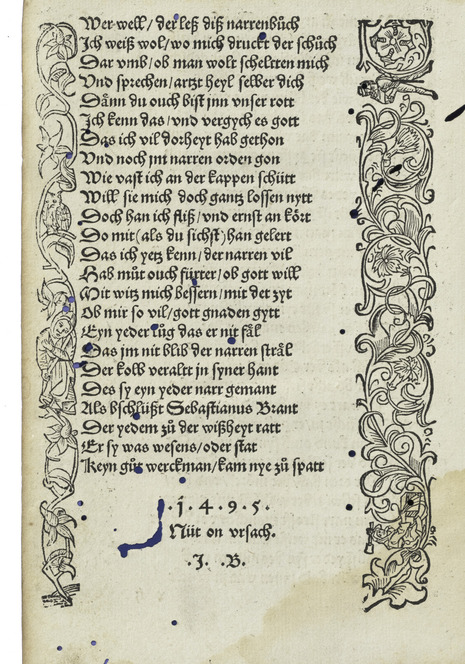 Wer well/ der leß diß narrenbůch
Ich weiß wol/ wo mich druckt der schůch
Dar vmb/ ob man wolt schelckten mich
Vnd sprechen/ artzt heyl selber dich
Dann du ouch bist jnn vnser rott
Ich kenn das/ vnd vergych es gott
Das ich vil dorheyt hab gethon
Vnd noch jm narren orden gon
Wie vast ich an der kappen schütt
Will sie mich doch gantz lossen nytt
Doch han ich fliß/ vnd ernst an kört
Do mit (als du sichst) han gelert
Das ich yetz kenn/ der narren vil
Hab můt ouch fürter/ ob gott will
Mit witz mich bessern/ mit der zyt
Ob mir so vil/ gott gnaden gytt
Eyn yeder lůg das er nit fäl
Das jm nit blib der narren sträl
Der kolb veralt jn syner hant
Des sy eyn yeder narr gemant
Als bschlüßt Sebastianus Brant
Der yedem zů der wißheyt ratt
Er sy was wesens/ oder stat
Keyn gůt werckman/ kam nye zů spatt
·1·4·9·5·
Nüt on vrsach.
·J. ·B.